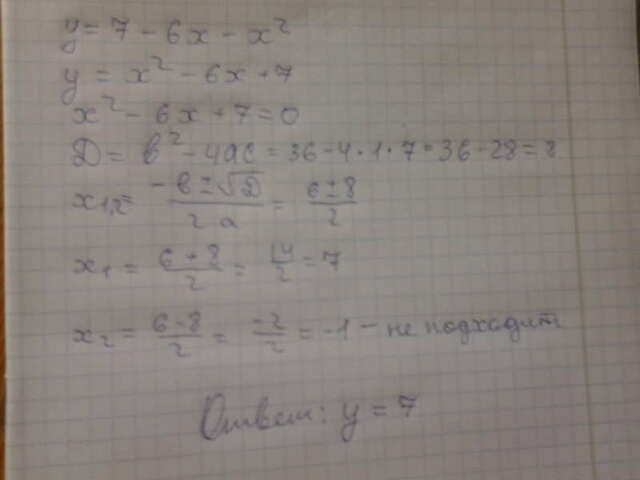 y = 7 - 6x - x²
y = x² - 6x + 7
x² - 6x + 7 = 0
D = b² - 4ac = 36 - 4 · 1 · 7 = 36 - 28 = 8
x₁,₂ = (-b ± √D) / (2a) = (6 ± 8) / 2
x₁ = (6 + 8) / 2 = 14/2 = 7
x₂ = (6 - 8) / 2 = -2/2 = -1 - не подходит
Ответ: y = 7